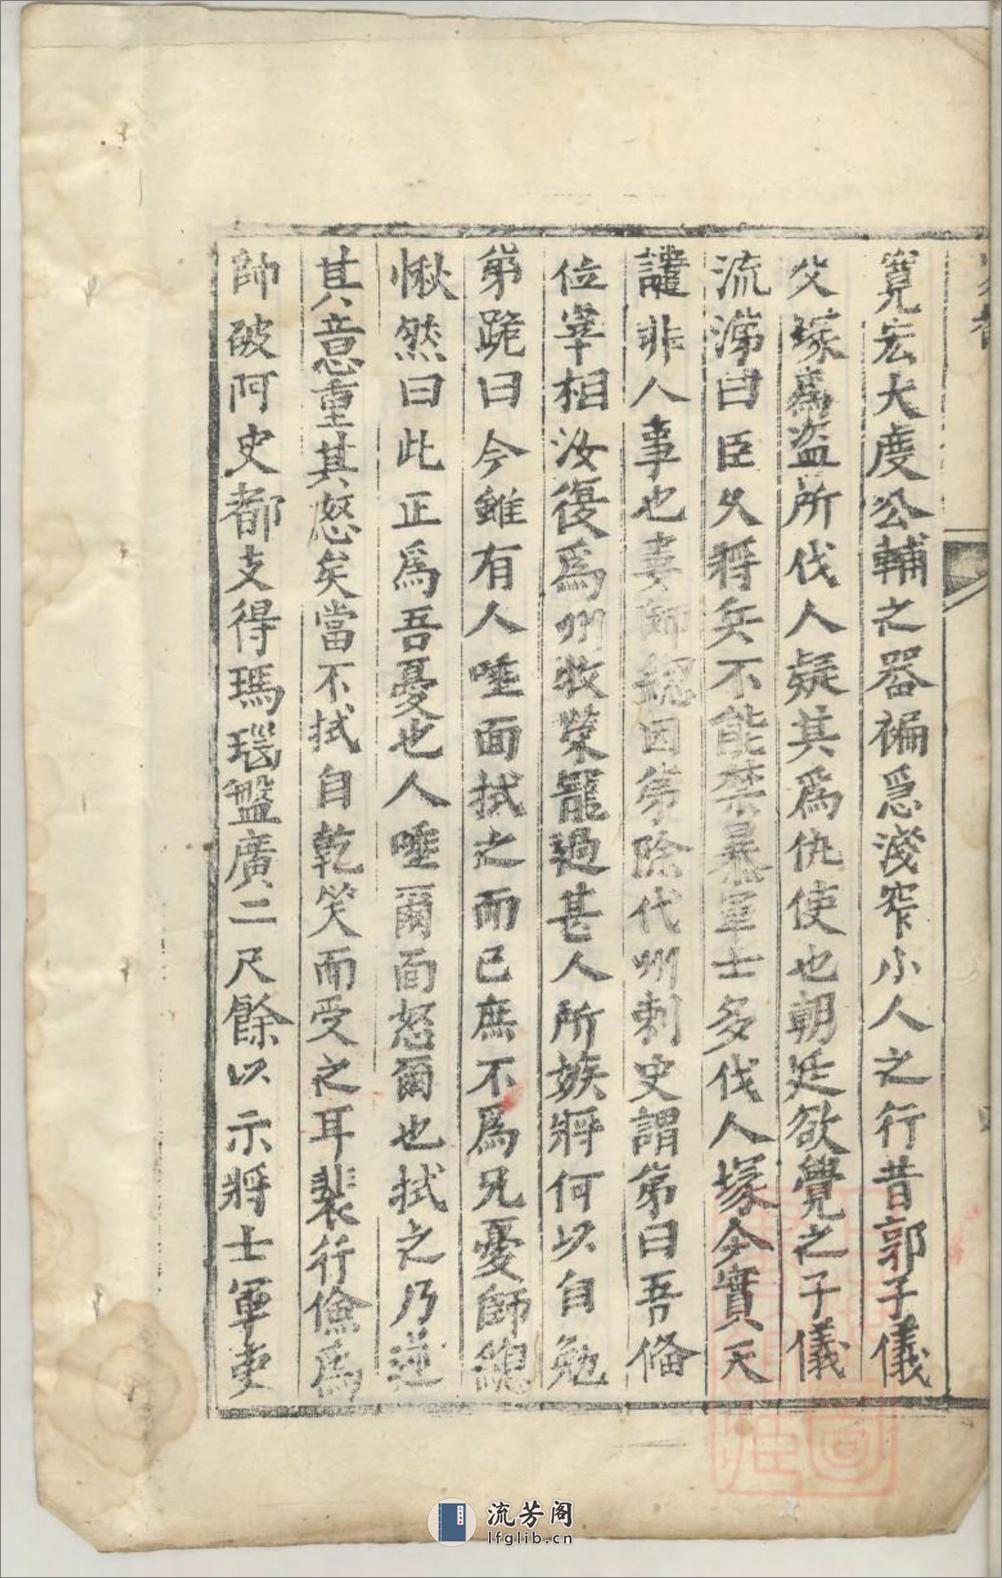 寬宏大度公輔之器褊急淺窄小人之行昔郭子儀
父塚爲盜所伐人疑其爲仇使也朝廷欲覺之子儀
流涕曰臣久將兵不能禁暴軍士多伐人塚今實天
譴非人事也婁師緫因弟除代州刺史謂弟曰吾俻
位宰相汝復爲州牧榮寵過甚人所嫉將何以自勉
弟跪曰今雖有人唾面拭之而已庶不爲兄憂師緫
愀然曰此正爲吾憂也人唾爾面怒爾也拭之乃逆
其意重其怒矣當不拭自乾笑而受之耳裴行儉爲
帥破阿史都支得瑪瑙盤廣二尺餘以示將士軍吏
流芳阁
lfglib.cn